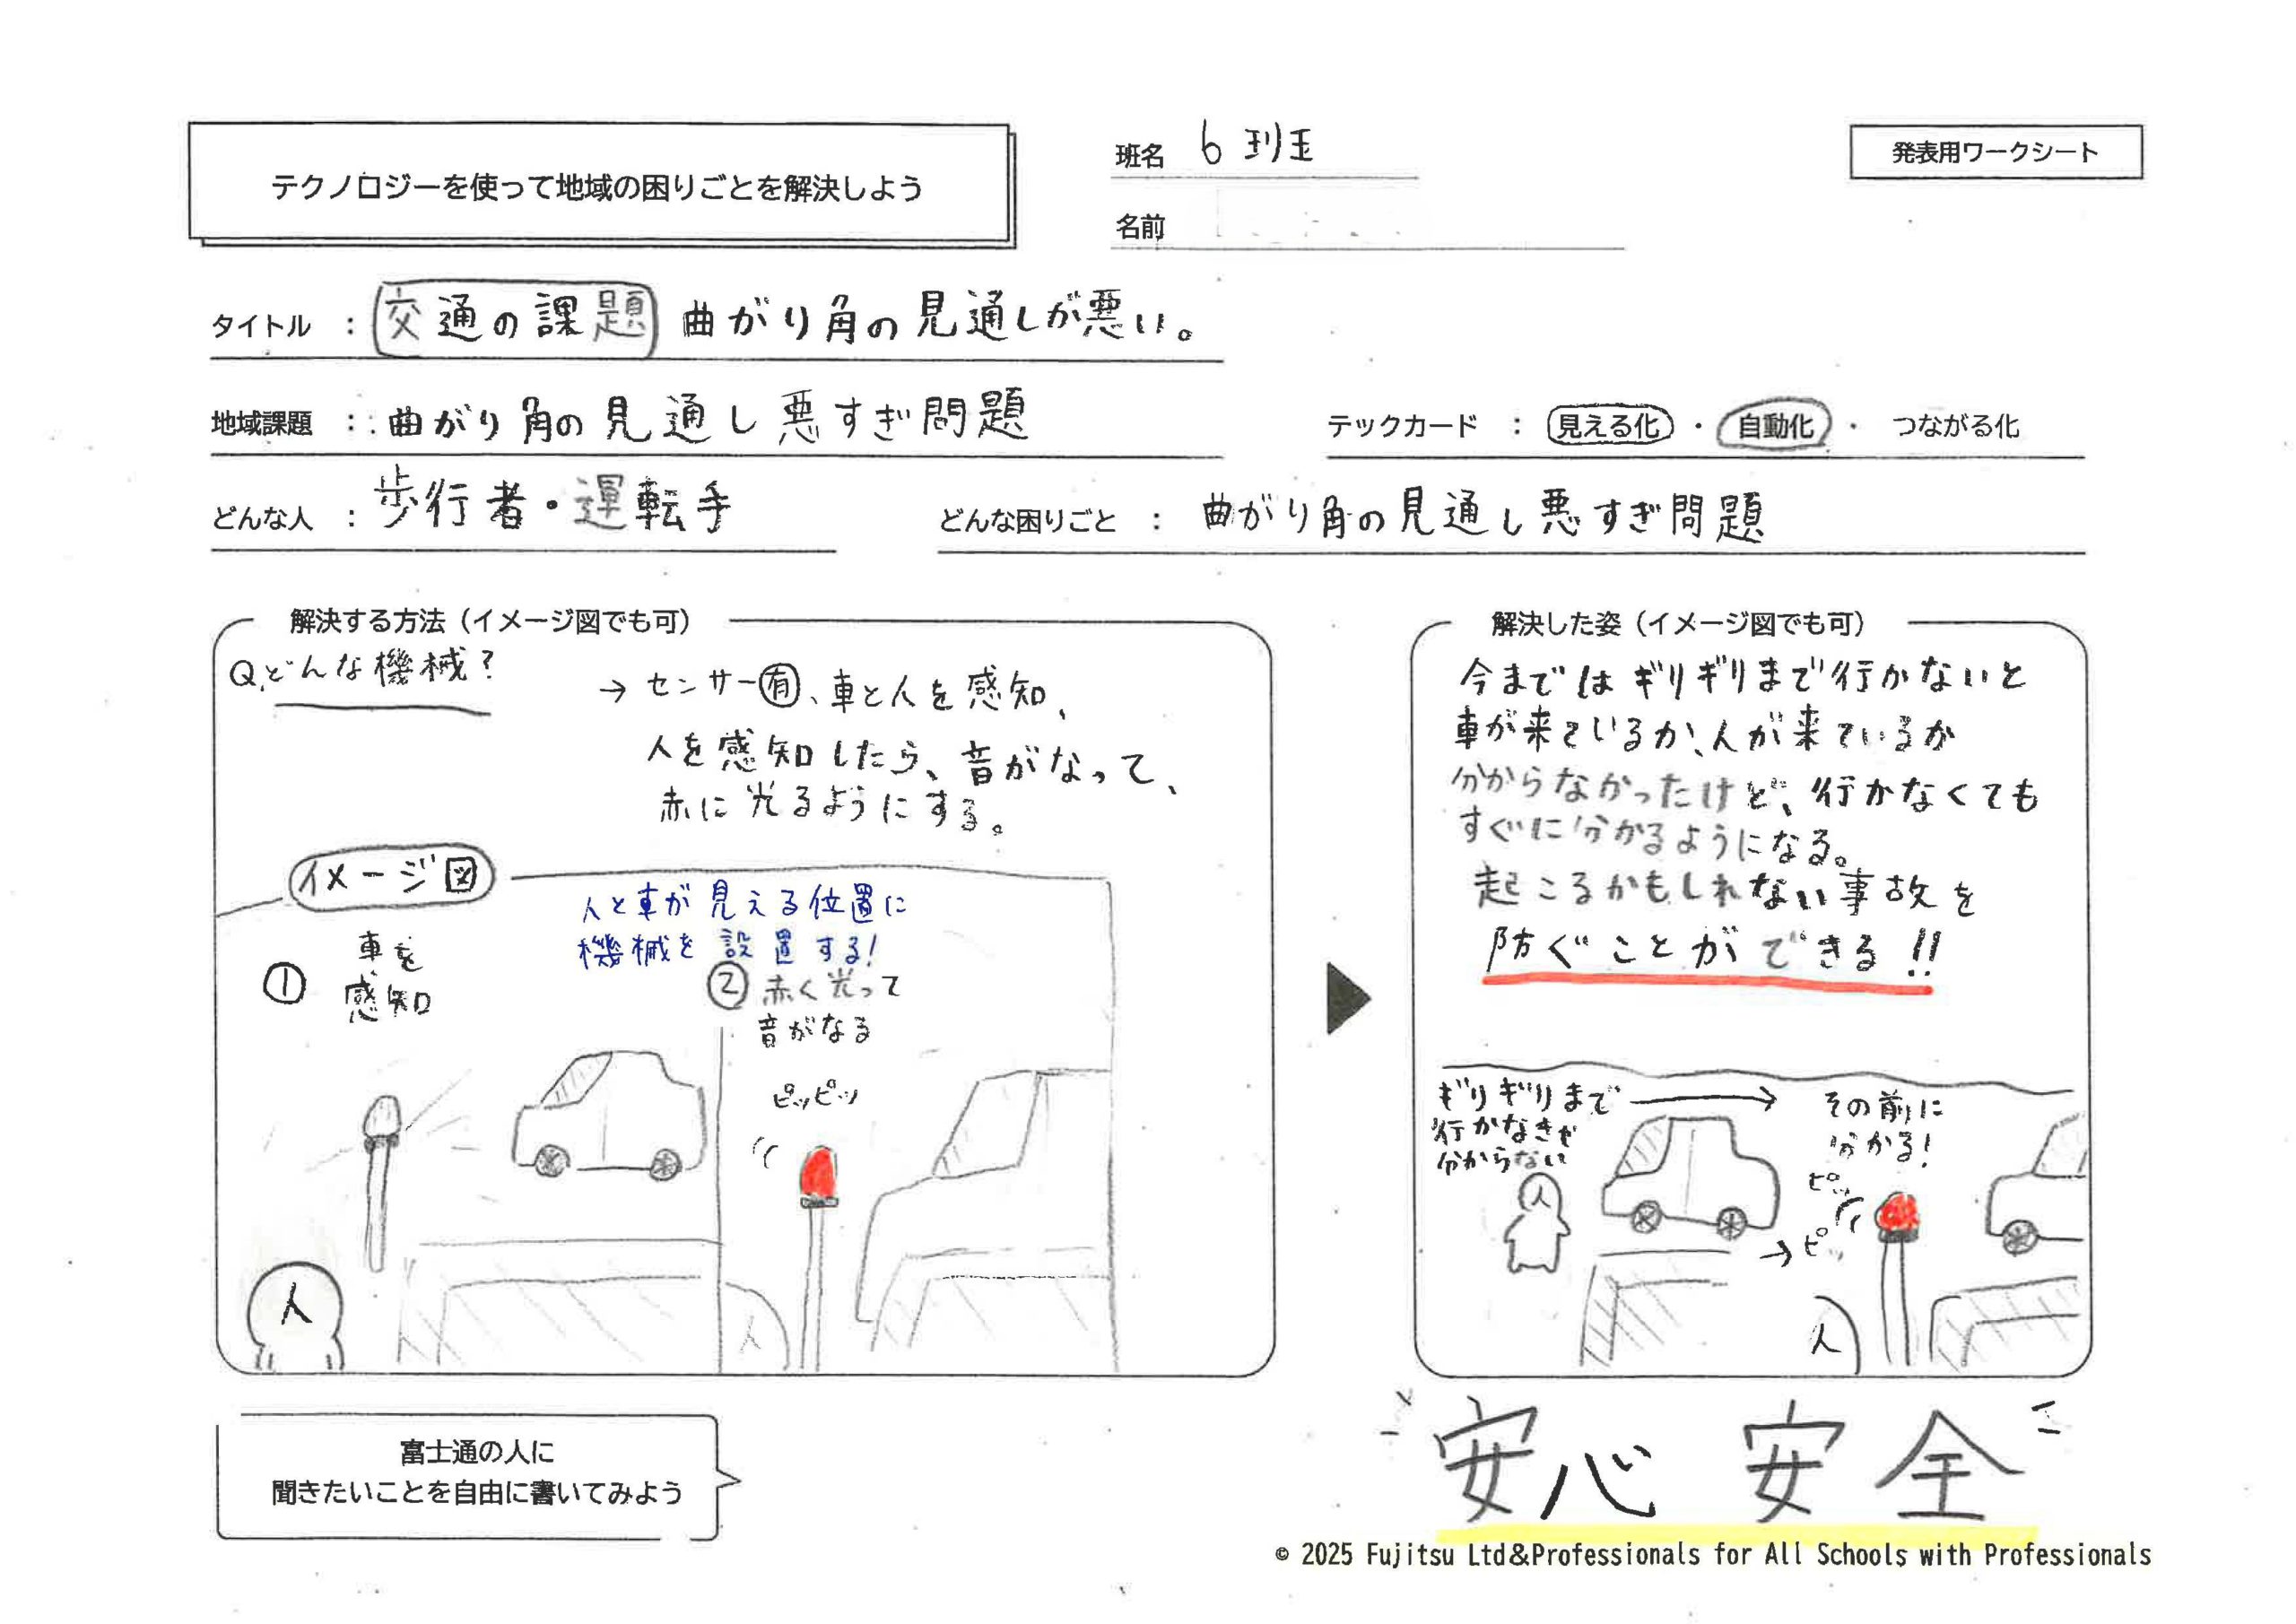 テクノロジーを使って地域の困りごとを解決しよう
班名 6班
発表用ワークシート
名前
タイトル : 交通の課題 曲がり角の見通しが悪い。
地域課題 : 曲がり角の見通し悪すぎ問題
テックカード : 見える化 ・ 自動化 ・ つながる化
どんな人 : 歩行者・運転手
どんな困りごと : 曲がり角の見通し悪すぎ問題
解決する方法（イメージ図でも可）
Q.どんな機械?
→ センサー有、車と人を感知、
人を感知したら、音がなって、
赤に光るようにする。
イメージ図
人と車が見える位置に
機械を設置する!
① 車を
感知
② 赤く光って
音がなる
ピッピッ
人
人
解決した姿（イメージ図でも可）
今まではギリギリまで行かないと
車が来ているか、人が来ているか
分からなかったけど、行かなくても
すぐに分かるようになる。
起こるかもしれない事故を
防ぐことができる!!
ギリギリまで
行かなきゃ
分からない
その前に
分かる!
ピッ
→ピッ
人
人
富士通の人に
聞きたいことを自由に書いてみよう
安心 安全
© 2025 Fujitsu Ltd&Professionals for All Schools with Professionals